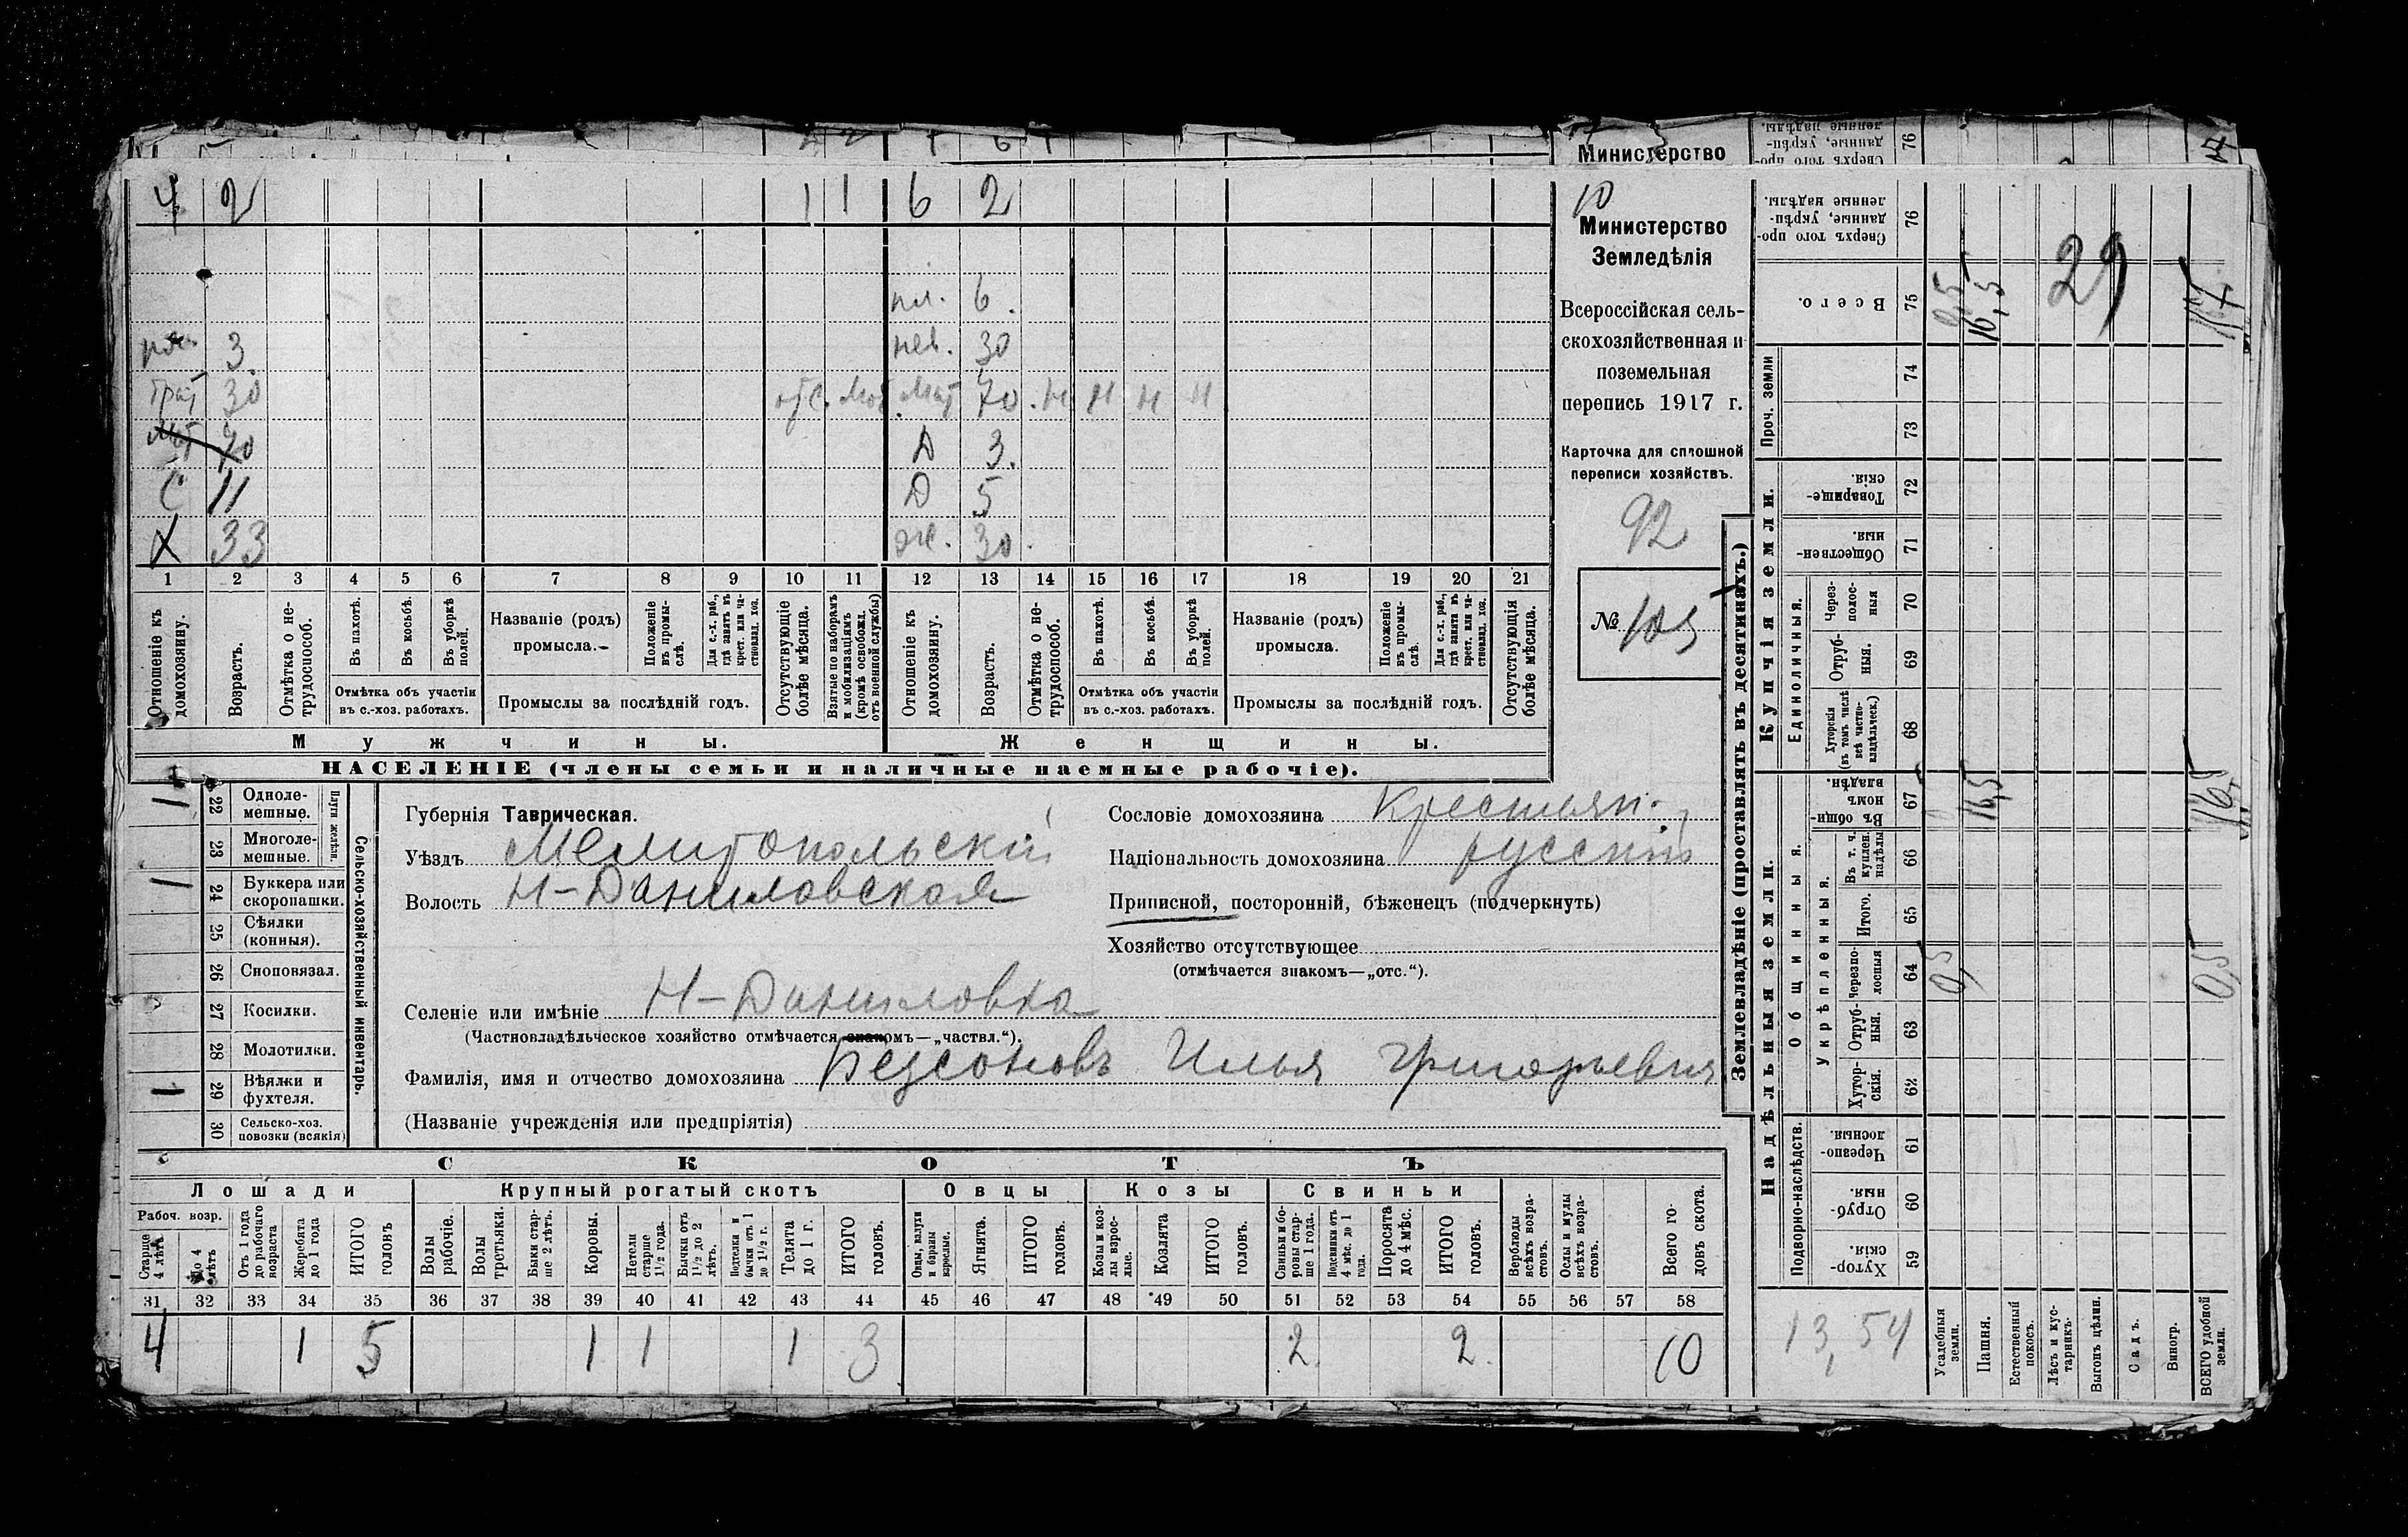 Министерство
4 2 1 1 6 2
пл. 6.
3 нев. 30
брат 30 отс. Моб. Мат 70. Н Н Н Н
Мат 70 Д 3.
С 11 Д 5
Х 33 ж. 30.
1 2 3 4 5 6 7 8 9 10 11 12 13 14 15 16 17 18 19 20 21
Отношеніе къ домохозяину.
Возрастъ.
Отмѣтка о нетрудоспособ.
Въ пахотѣ.
Въ косьбѣ.
Въ уборкѣ полей.
Отмѣтка объ участіи въ с.-хоз. работахъ.
Названіе (родъ) промысла.
Положеніе въ промыслѣ.
Для с.-х. раб., гдѣ занятъ въ крест. или частновлад. хоз.
Промыслы за послѣдній годъ.
Отсутствующіе болѣе мѣсяца.
Взятые по наборамъ и мобилизаціямъ (кромѣ освобожд. отъ военной службы)
Отношеніе къ домохозяину.
Возрастъ.
Отмѣтка о нетрудоспособ.
Въ пахотѣ.
Въ косьбѣ.
Въ уборкѣ полей.
Отмѣтка объ участіи въ с.-хоз. работахъ.
Названіе (родъ) промысла.
Положеніе въ промыслѣ.
Для с.-х. раб., гдѣ занятъ въ крест. или частновлад. хоз.
Промыслы за послѣдній годъ.
Отсутствующія болѣе мѣсяца.
Мужчины. Женщины.
НАСЕЛЕНІЕ (члены семьи и наличные наемные рабочіе).
10
Министерство
Земледѣлія
Всероссійская сель-
скохозяйственная и
поземельная
перепись 1917 г.
Карточка для сплошной
переписи хозяйствъ.
92
№ 105
Сельско-хозяйственный инвентарь.
Плуги желѣзн.
1 22 Одноле-мешные.
23 Многоле-мешные.
1 24 Буккера или скоропашки.
25 Сѣялки (конныя).
26 Сноповязал.
27 Косилки.
28 Молотилки.
1 29 Вѣялки и фухтеля.
30 Сельско-хоз. повозки (всякія)
Губернія Таврическая.
Уѣздъ Мелитопольскій
Волость Н-Даниловская
Селеніе или имѣніе Н-Даниловка
(Частновладѣльческое хозяйство отмѣчается знакомъ—„частвл.“).
Фамилія, имя и отчество домохозяина Безсоновъ Илья Григорьевич
(Названіе учрежденія или предпріятія)
Сословіе домохозяина Крестьян.
Національность домохозяина русскій
Приписной, посторонній, бѣженецъ (подчеркнуть)
Хозяйство отсутствующее
(отмѣчается знакомъ—„отс.“).
СКОТЪ
Лошади Крупный рогатый скотъ Овцы Козы Свиньи
Рабоч. возр.
Старше 4 лѣтъ
До 4 лѣтъ
Отъ 1 года до рабочаго возраста
Жеребята до 1 года
ИТОГО головъ
Волы рабочіе.
Волы третьяки.
Быки старше 2 лѣтъ.
Коровы.
Нетели старше 1½ года.
Бычки отъ 1½ до 2 лѣтъ.
Подтелки и бычки отъ 1 до 1½ г.
Телята до 1 г.
ИТОГО головъ.
Овцы, валухи и бараны взрослые.
Ягнята.
ИТОГО головъ.
Козы и козлы взрослые.
Козлята
ИТОГО головъ.
Свиньи и боровы старше 1 года.
Подсвинки отъ 4 мѣс. до 1 года.
Поросята до 4 мѣс.
ИТОГО головъ.
Верблюды всѣхъ возрастовъ.
Ослы и мулы всѣхъ возрастовъ.
Всего головъ скота.
31 32 33 34 35 36 37 38 39 40 41 42 43 44 45 46 47 48 49 50 51 52 53 54 55 56 57 58
4 1 5 1 1 1 3 2. 2. 10
Землевладѣніе (проставлять въ десятинахъ.)
Надѣльныя земли. Купчія земли.
Подворно-наслѣдств.
Общинныя.
Укрѣпленныя.
Единоличныя.
Проч. земли
59 Хуторскія.
60 Отрубныя.
61 Черезполосныя.
62 Хуторскія.
63 Отрубныя.
64 Черезполосныя
65 Итого.
66 Въ т. ч. куплен. надѣлы
67 Въ общинномъ владѣн.
68 Хуторскія (въ томъ числѣ всѣ частновладѣльческ.)
69 Отрубныя.
70 Черезполосныя
71 Общественныя.
72 Товарищескія.
73
74
75 Всего.
76 Сверхъ того проданные, укрѣпленные надѣлы.
Усадебныя земли.
Пашня.
Естественный покосъ.
Лѣсъ и кустарникъ.
Выгонъ цѣлин.
Садъ.
Виногр.
ВСЕГО удобной земли.
0,5 0,5
16,5 16,5
0,5 16,5 29 17
13,54